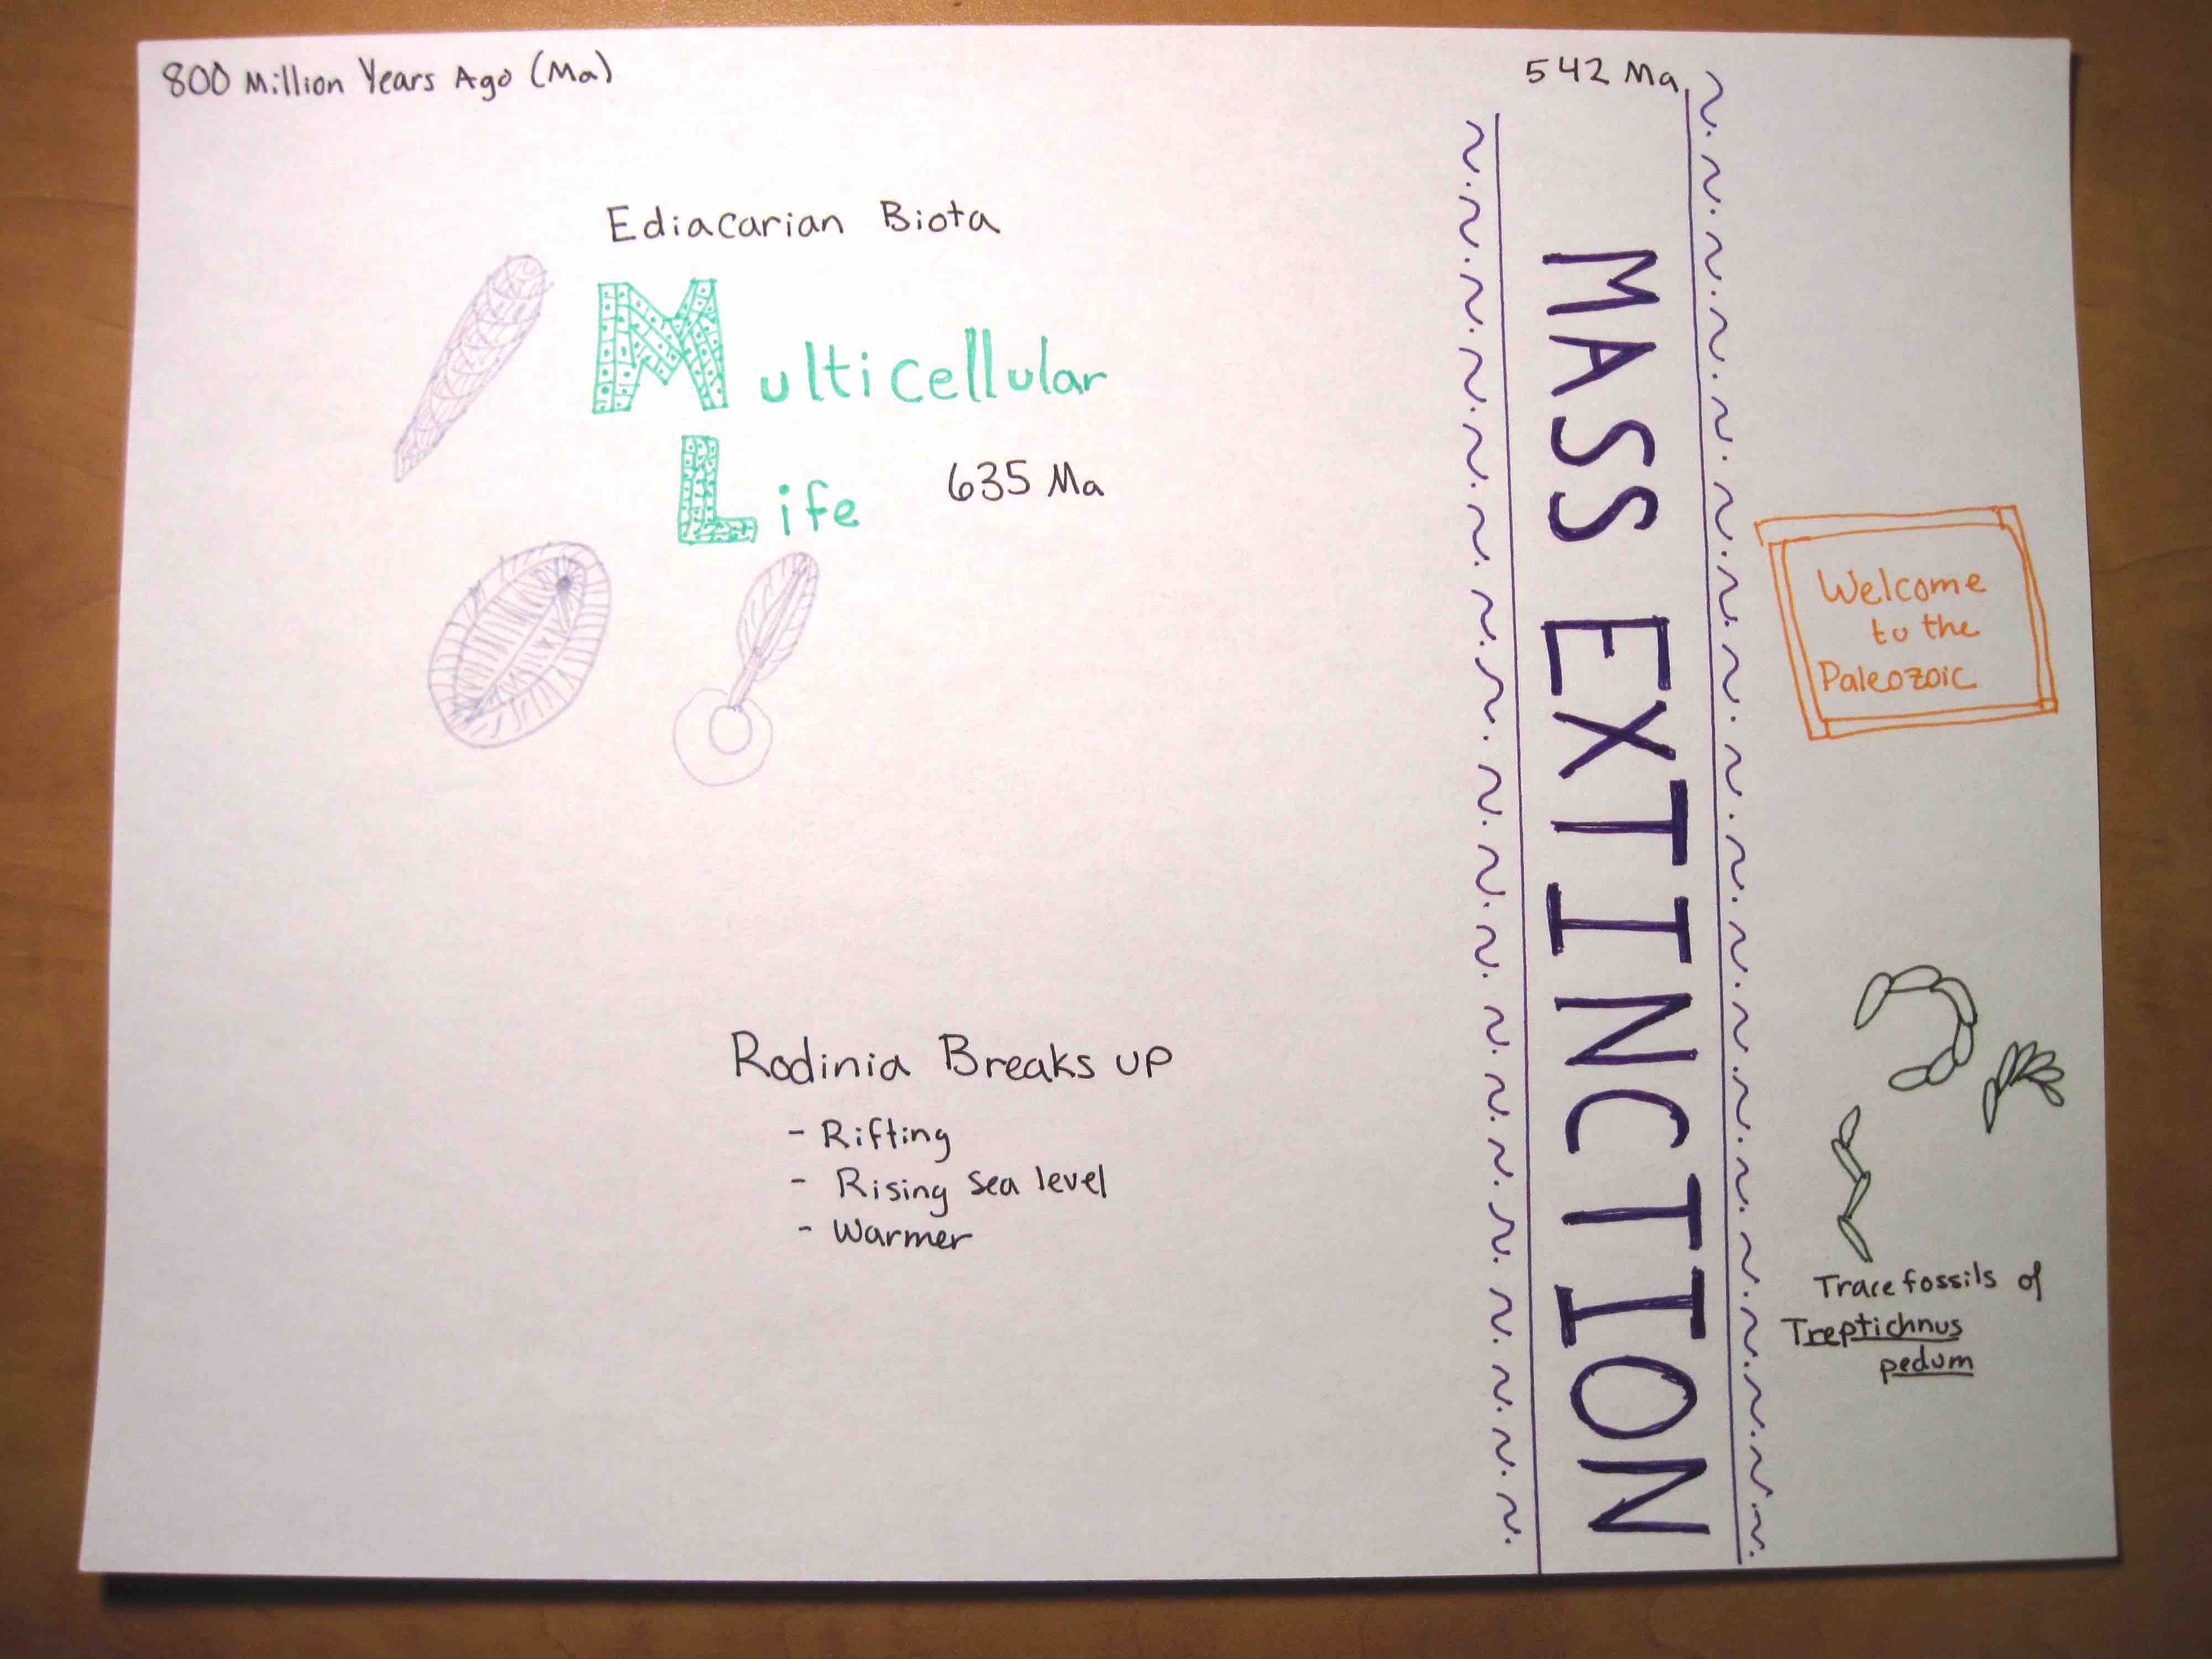 800 Million Years Ago (Ma)
542 Ma
Ediacarian Biota
Multicellular
Life
635 Ma
MASS EXTINCTION
Welcome
to the
Paleozoic
Rodinia Breaks up
- Rifting
- Rising sea level
- Warmer
Trace fossils of
Treptichnus
pedum